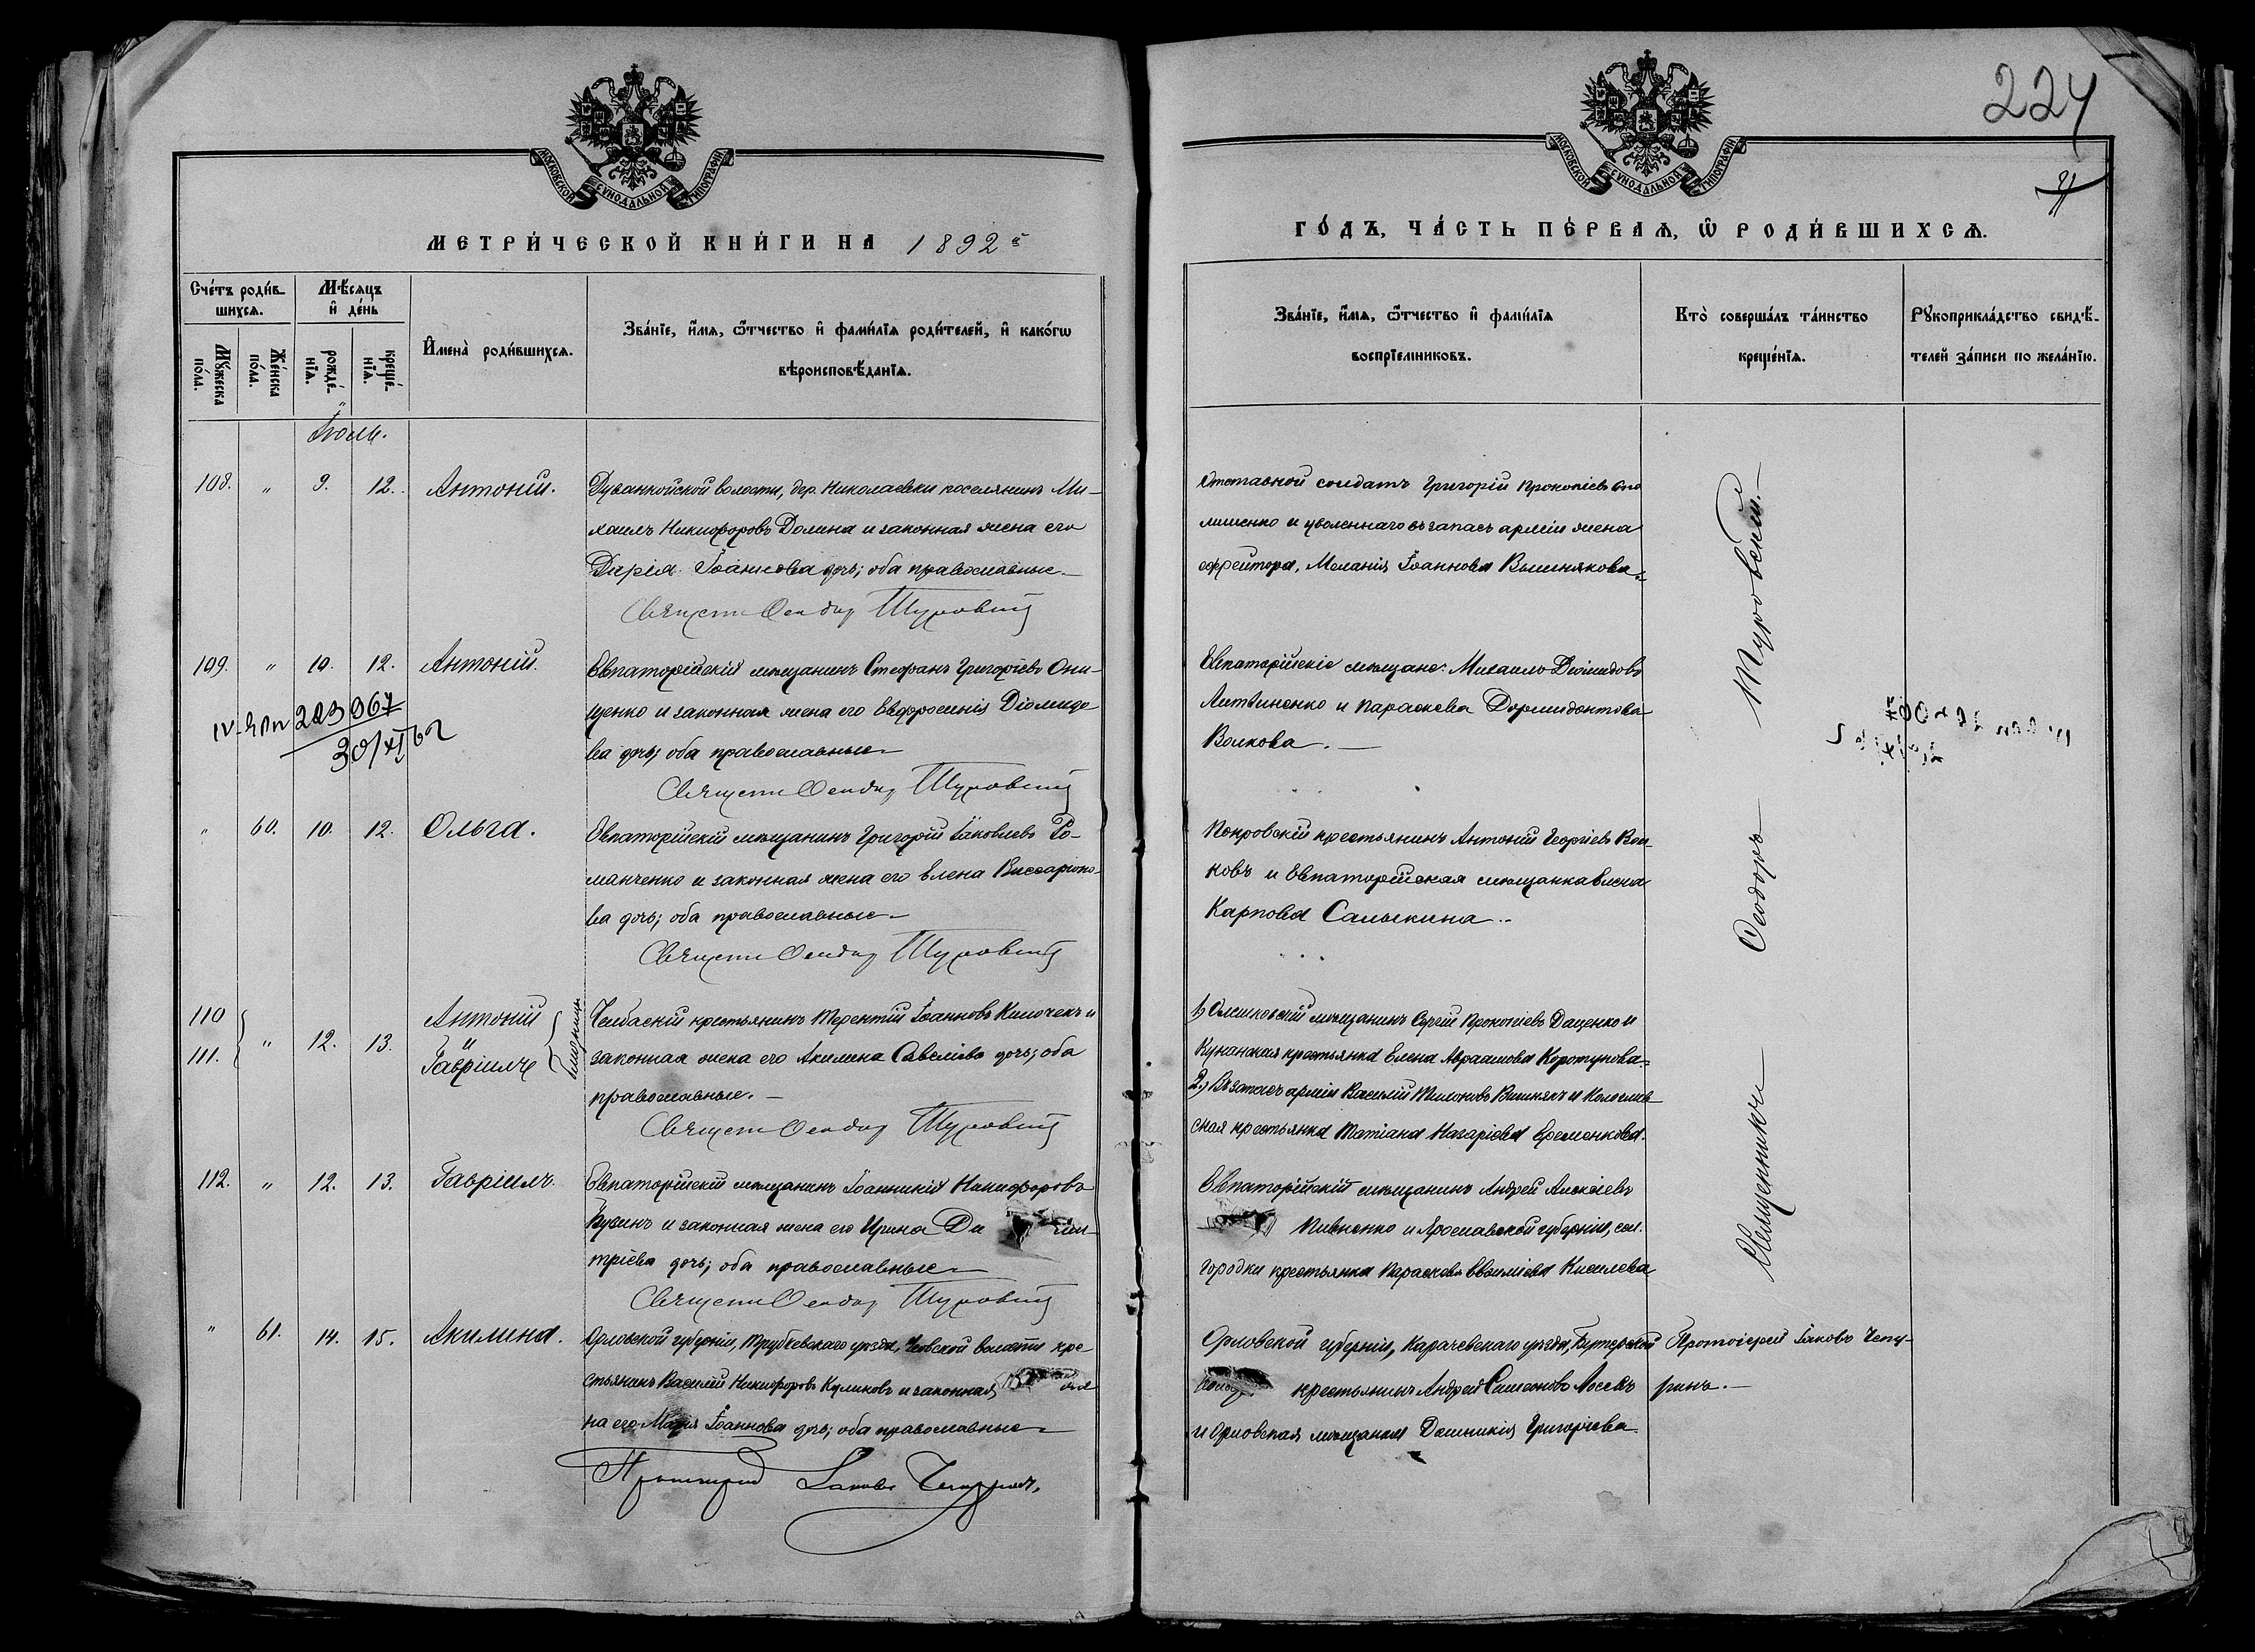 МОСКОВСКОЙ СѴНОДАЛЬНОЙ ТИПОГРАФІИ
МЕТРИ́ЧЕСКОЙ КНИ́ГИ НА 1892й
Сче́тъ роди́в-
шихсѧ.
Мѣ́сѧцъ
и҆ де́нь
Мꙋ́жеска
по́ла.
Же́нска
по́ла.
рожде́-
нїѧ.
креще́-
нїѧ.
И҆мена̀ роди́вшихсѧ.
Зва́нїе, и҆́мѧ, ѻ҆́тчество и҆ фами́лїѧ роди́телей, и҆ како́гѡ
вѣроисповѣ́данїѧ.
Іюль.
108. " 9. 12. Антоній.
Дуванкойской волости, дер. Николаевки поселянинъ Ми-
хаилъ Никифоровъ Долина и законная жена его
Дарія Іоаннова дочь; оба православные.
Священ Ѳеодор Туровский
109. " 10. 12. Антоній.
Евпаторійскій мѣщанинъ Стефанъ Григорьевъ Они-
щенко и законная жена его Евфросинія Діомидо
ва дочь; оба православные
Священ Ѳеодор Туровский
IV-ЯЛ 223967
30/XI 62
" 60. 10. 12. Ольга.
Евпаторійскій мѣщанинъ Григорій Іаковлевъ Ро-
манченко и законная жена его Елена Виссаріоно-
ва дочь; оба православные
Священ Ѳеодор Туровский
110
111. " 12. 13. Антоній
и
Гавріилъ
близнецы
крестьянинъ Терентій Іоанновъ Килочекъ и
законная жена его Акилина Савельева дочь; оба
православные.
Священ Ѳеодор Туровский
112. " 12. 13. Гавріилъ.
Евпаторійскій мѣщанинъ Іоанникій Никифоровъ
Бузинъ и законная жена его Ирина Ди
тріева дочь; оба православные
Священ Ѳеодор Туровский
" 61. 14. 15. Акилина.
Орловской губерніи, Трубчевскаго уѣзда, волости кре
стьянинъ Василій Никифоровъ Куликовъ и законная
на его Марія Іоаннова дочь; оба православные
Протоіерей Іаковъ Чепуринъ.
224
МОСКОВСКОЙ СѴНОДАЛЬНОЙ ТИПОГРАФІИ
ГО́ДЪ, ЧА́СТЬ ПЕ́РВАѦ, Ѿ РОДИ́ВШИХСѦ.
Зва́нїе, и҆́мѧ, ѻ҆́тчество и҆ фами́лїѧ
воспрїе́мниковъ.
Кто̀ соверша́лъ та́инство
креще́нїѧ.
Рꙋкоприкла́дство свидѣ́-
телей за́писи по жела́нїю.
Отставной солдатъ Григорій Прокопіевъ Ono
лименко и уволеннаго въ запасъ арміи жена
ефрейтора, Меланія Іоаннова Вишнякова.
Евпаторійскіе мѣщане: Михаилъ Діомидовъ
Литвиненко и Параскева Дормидонтова
Волкова.
Покровскій крестьянинъ Антоній Георгіевъ Вол-
ковъ и Евпаторійская мѣщанка Елена
Карпова Салыкина.
1) Олешковскій мѣщанинъ Сергій Прокопіевъ Даценко и
крестьянка Елена Авраамова Коротунова.
2.) Въ запасъ арміи Василій Тимоновъ Вишнякъ и
ская крестьянка Татіана Назаріева Еременкова.
Евпаторійскій мѣщанинъ Андрей Алексіевъ
Пивненко и Ярославской губерніи, сел.
Городки крестьянка Параскева Киселева
Орловской губерніи, Карачевскаго уѣзда,
крестьянинъ Андрей Симеоновъ Лосевъ
и Орловская мѣщанка Домникія Григоріева
Священникъ Ѳеодоръ Туровский.
Протоіерей Іаковъ Чепу-
ринъ.